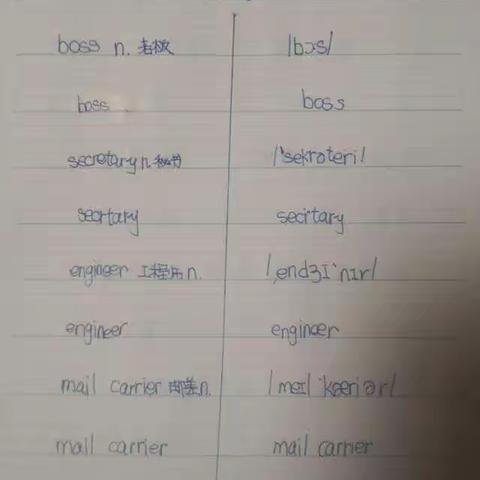 boss n. 老板 /bɔs/
boss boss
secretary n 秘书 /'sekroteri/
secrtary secirtary
engineer 工程师 n. /ˌendʒɪ'nɪr/
engineer engineer
mail carrier 邮差 n. /meɪl 'kæriər/
mail carrier mail carrier